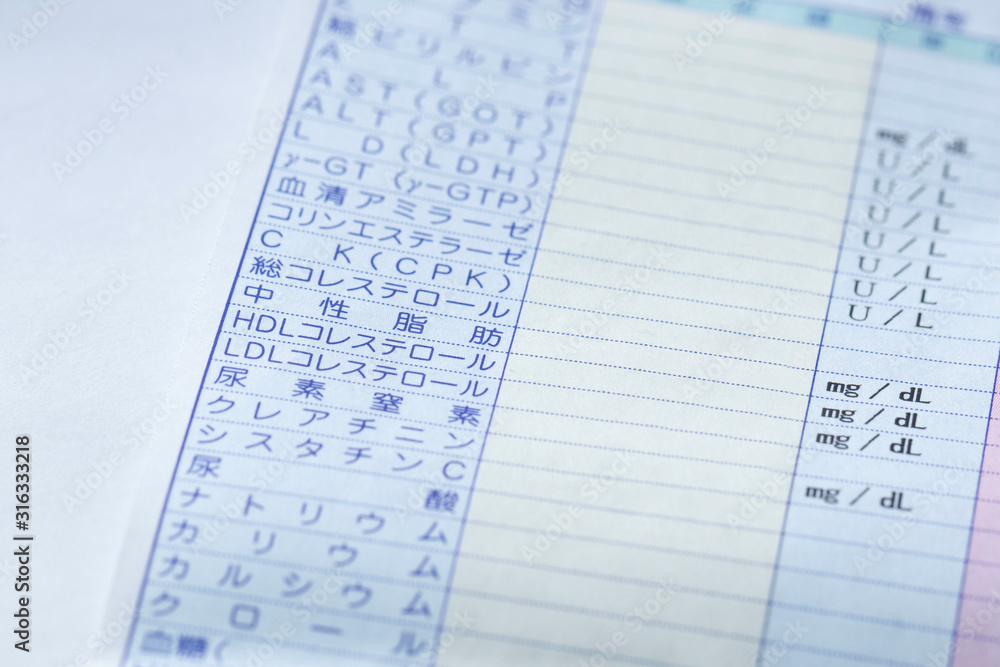 総ビリルビン mg/dL
ALP U/L
AST(GOT) U/L
ALT(GPT) U/L
LD(LDH) U/L
γ-GT(γ-GTP) U/L
血清アミラーゼ U/L
コリンエステラーゼ U/L
CK(CPK)
総コレステロール
中性脂肪 mg/dL
HDLコレステロール mg/dL
LDLコレステロール mg/dL
尿素窒素
クレアチニン mg/dL
シスタチンC
尿酸
ナトリウム
カリウム
カルシウム
クロール
血糖(
Adobe Stock | #316333218